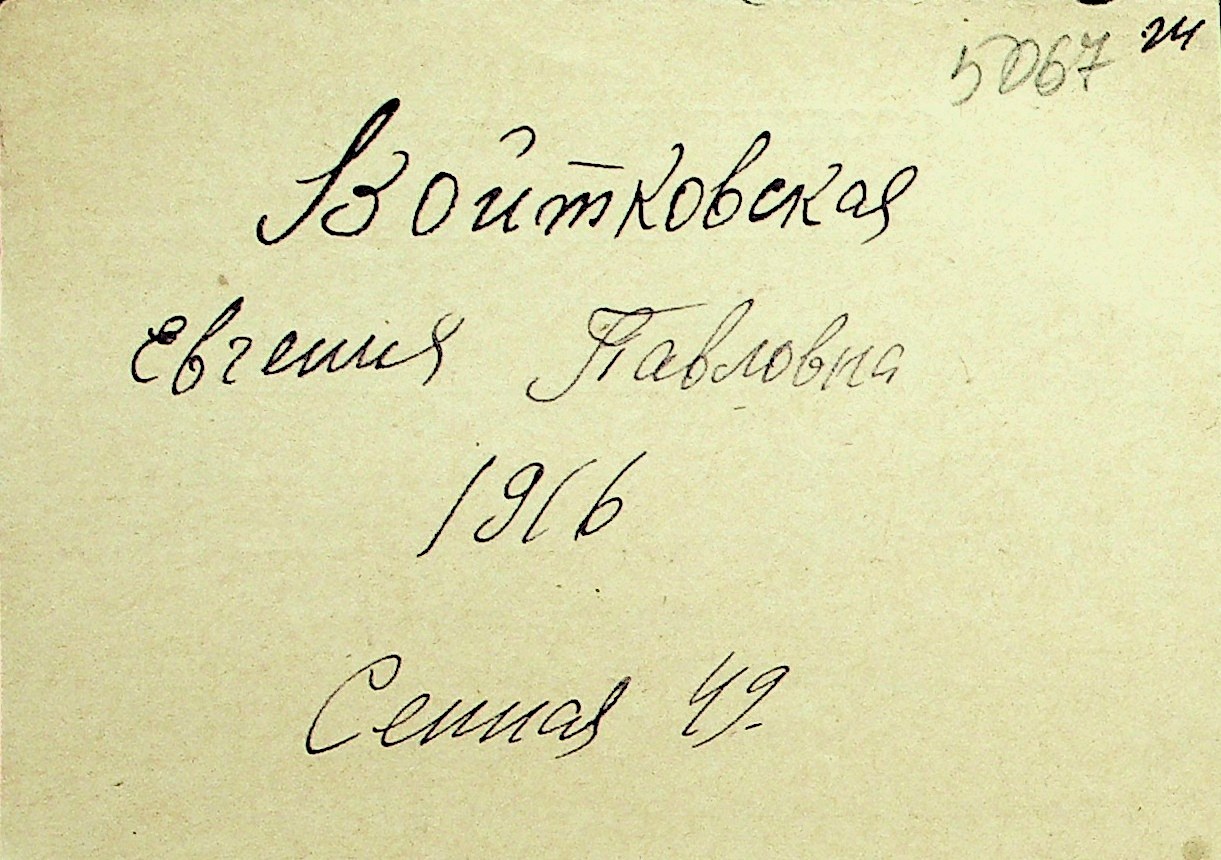 5067 24
Войтковская
Евгения Павловна
1916
Сенная 49